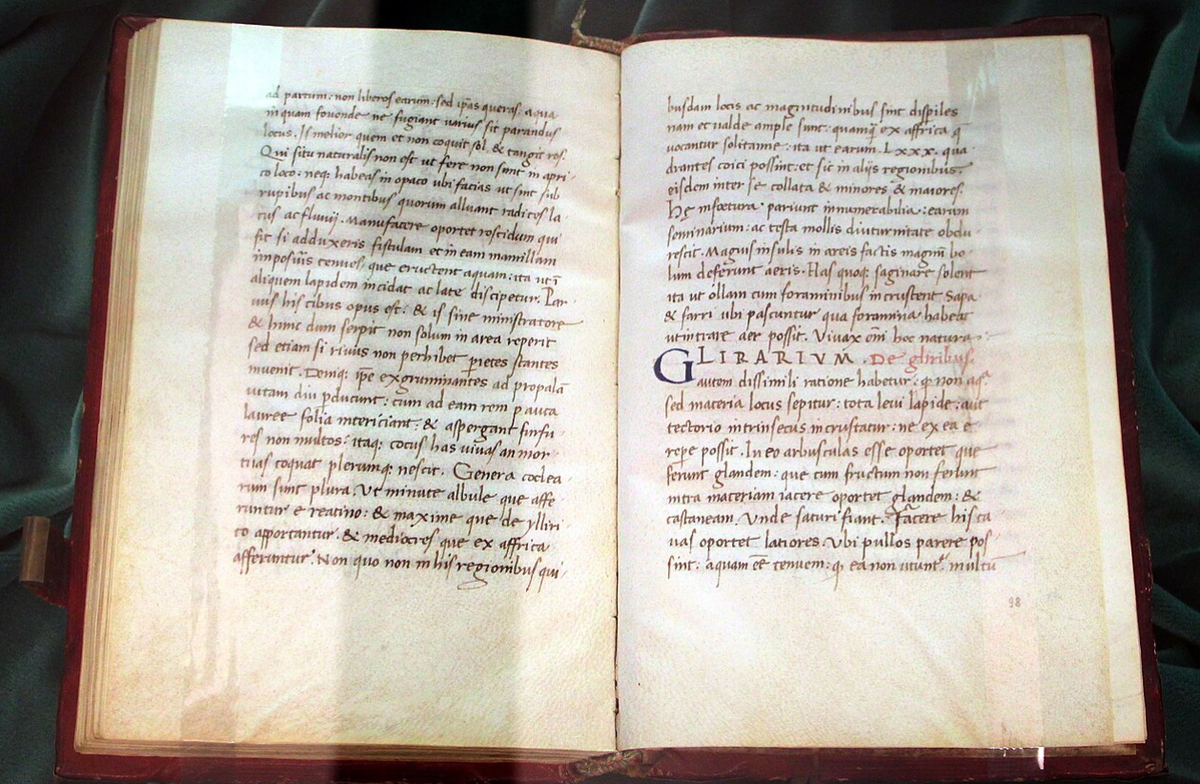 ad partum: non liberos earum: sed ip̄as queras. aqua
inquam fouende ne fugiant uarius sit parandus
locus. Is melior quem et non coquit sol. & tangit ros.
Qui situ naturalis non est ut fere non sunt in apri-
co loco: neq; habeas in opaco ubi facias ut sint sub
rupibus ac montibus quorum alluant radices la-
cus ac fluuij. Manufacere oportet roscidum qui
fit si adduxeris fistulam et in eam mamillam
imposuis tenues, que eructent aquam: ita ut ī
aliquem lapidem incidat ac late discipetur. Par-
uus his cibus opus est. & is sine ministratore
& hunc dum serpit non solum in area reperit
sed etiam si riuus non perhibet parietes stantes
inuenit. Deniq; ip̄e exgruminantes ad propalā
uitam diu pducunt: cum ad eam rem pauca
lauree folia intericiant: & aspergant furfu-
res non multos: itaq; cocus has uiuas an mor-
tuas coquat plerumq; nescit. Genera coclea
rum sunt plura. Ut minute albule que affe-
runtur e reatino: & maxime que de ylliri
co apportantur. & mediocres que ex affrica
afferuntur. Non quo non in his regionibus qui-
busdam locis ac magnitudinibus sint dispiles
nam et ualde ample sunt: quamq̄ ex affrica q̄
uocantur solitanne: ita ut earum. Lxxx. qua-
drantes coici possint: et sic in alijs regionibus.
eisdem inter se collata & minores & maiores.
Hę insoetura. pariunt innumerabilia: earum
seminarium: ac testa mollis diuturnitate obdu-
rescit. Magius insulis in areis factis magnū bo-
lum deferunt aeris. Has quoq; saginare solent
ita ut ollam cum foraminibus incrustent Sapa
& farri ubi pascuntur qua foramina habeat
ut intrare aer possit. Viuax em̄ hoc natura.
GLIRARIVM. De gliribus.
autem dissimili ratione habetur: q̄ non aq̄
sed materia locus sepitur: tota leui lapide: aut
tectorio intrinsecus incrustatur: ne ex ea e-
repe possit. In eo arbusculas esse oportet que
ferunt glandem: que cum fructum non ferunt
intra materiam iacere oportet glandem: &
castaneam. Unde saturi fiant. Facere his ca
uas oportet latiores. Ubi pullos parere pos-
sint: aquam eē tenuem: q̄ ea non utunt̄. multū
98